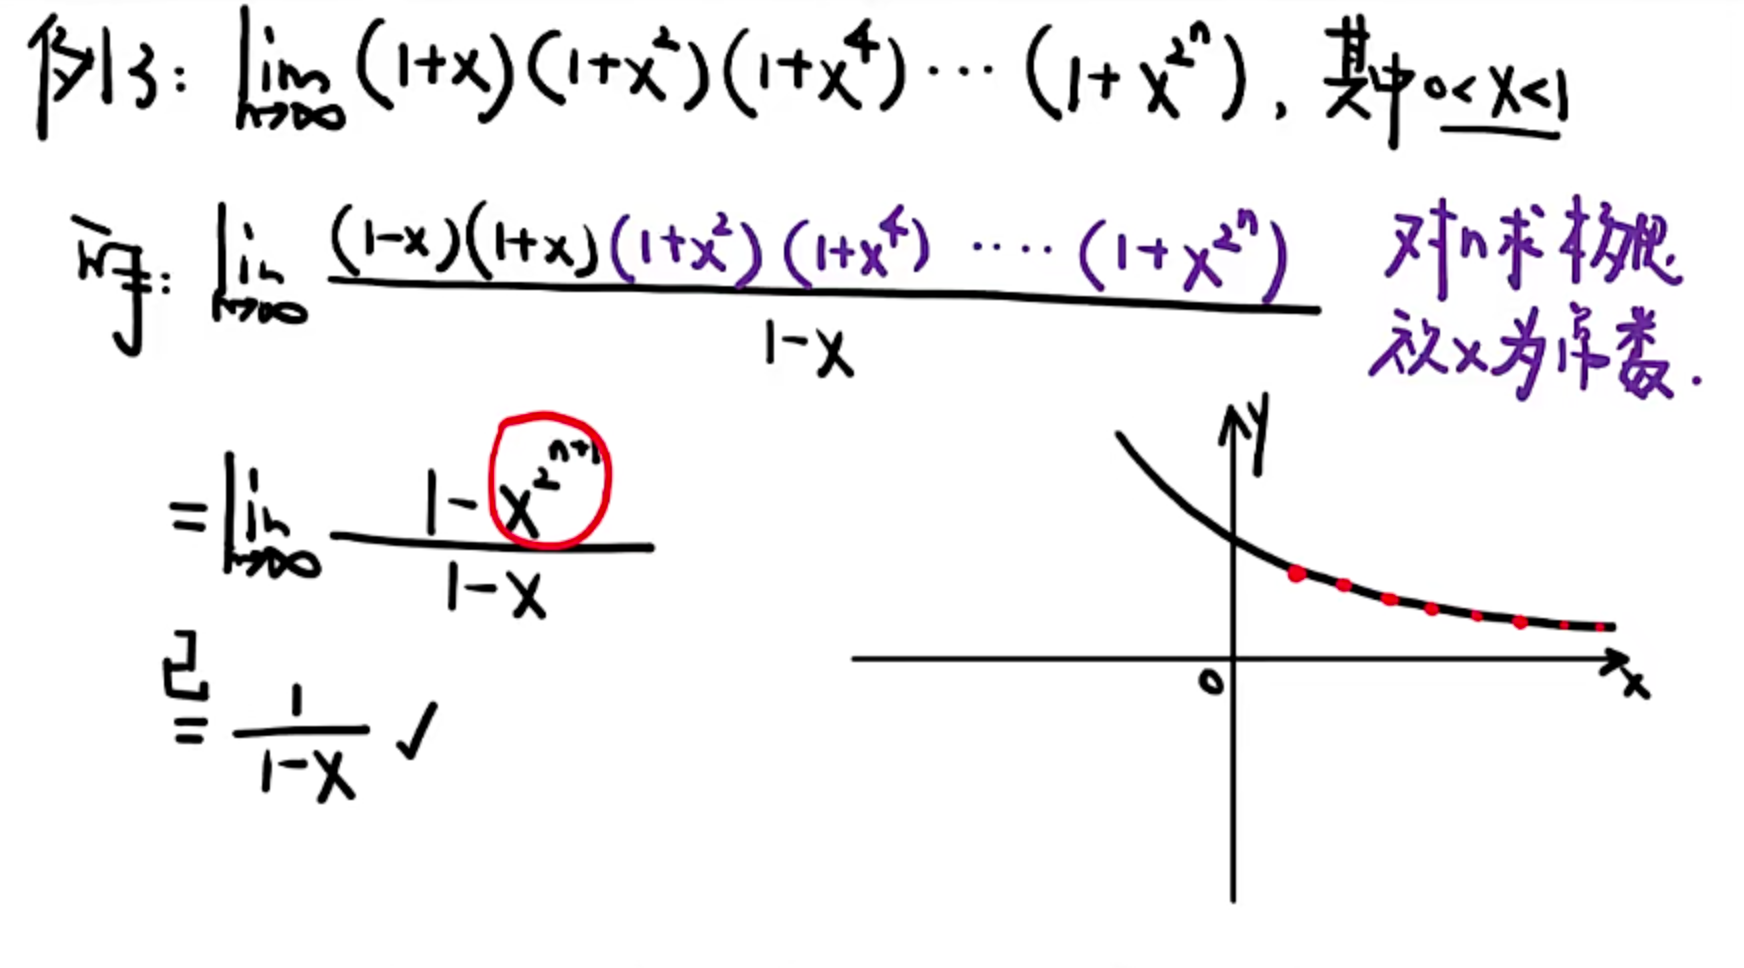 例3: lim n→∞ (1+x)(1+x²)(1+x⁴)⋯(1+x^{2^n}), 其中0<x<1
解: lim n→∞ (1-x)(1+x)(1+x²)(1+x⁴)⋯⋯(1+x^{2^n}) / 1-x
对n求极限
故x为常数.
= lim n→∞ 1-x^{2^{n+1}} / 1-x
= 1 / 1-x ✓
y
0
x